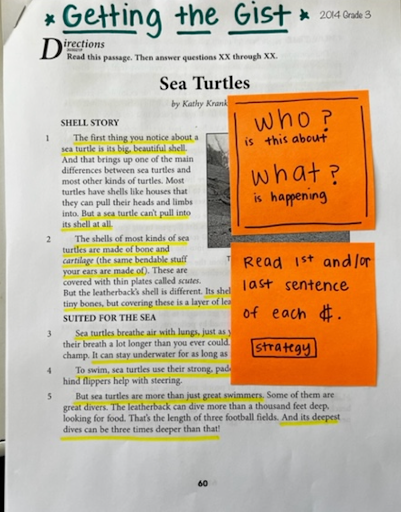 * Getting the Gist * 2014 Grade 3
Directions
Read this passage. Then answer questions XX through XX.
Sea Turtles
by Kathy Krank
SHELL STORY
1 The first thing you notice about a
sea turtle is its big, beautiful shell.
And that brings up one of the main
differences between sea turtles and
most other kinds of turtles. Most
turtles have shells like houses that
they can pull their heads and limbs
into. But a sea turtle can't pull into
its shell at all.
2 The shells of most kinds of sea
turtles are made of bone and
cartilage (the same bendable stuff
your ears are made of). These are
covered with thin plates called scutes.
But the leatherback's shell is different. Its shel
tiny bones, but covering these is a layer of lea
SUITED FOR THE SEA
3 Sea turtles breathe air with lungs, just as y
their breath a lot longer than you ever could.
champ. It can stay underwater for as long as
4 To swim, sea turtles use their strong, pad
hind flippers help with steering.
5 But sea turtles are more than just great swimmers. Some of them are
great divers. The leatherback can dive more than a thousand feet deep,
looking for food. That's the length of three football fields. And its deepest
dives can be three times deeper than that!
60
Who?
is this about
What?
is happening
Read 1st and/or
last sentence
of each ¶.
strategy